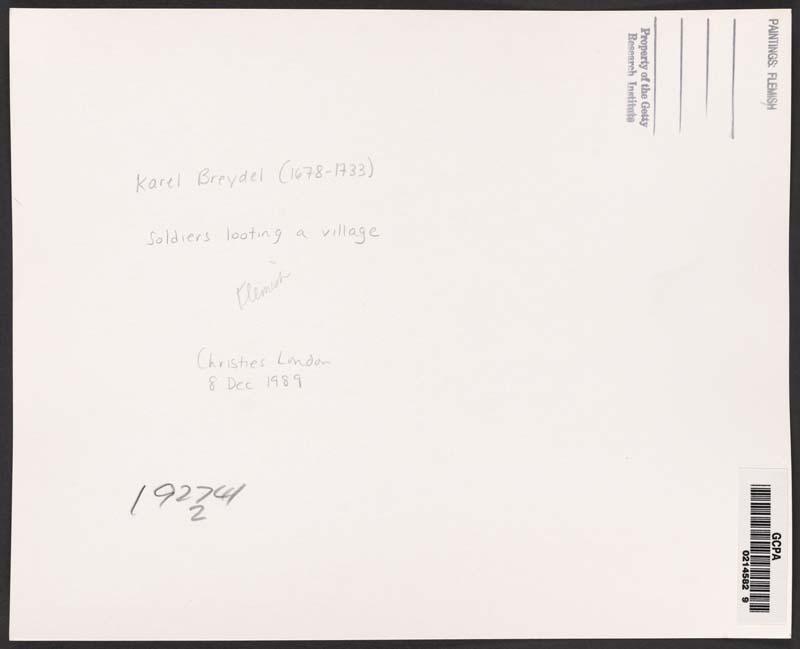 PAINTINGS: FLEMISH
Property of the Getty
Research Institute
Karel Breydel (1678-1733)
Soldiers looting a village
Flemish
Christies London
8 Dec 1989
192741
2
GCPA
0214582 9